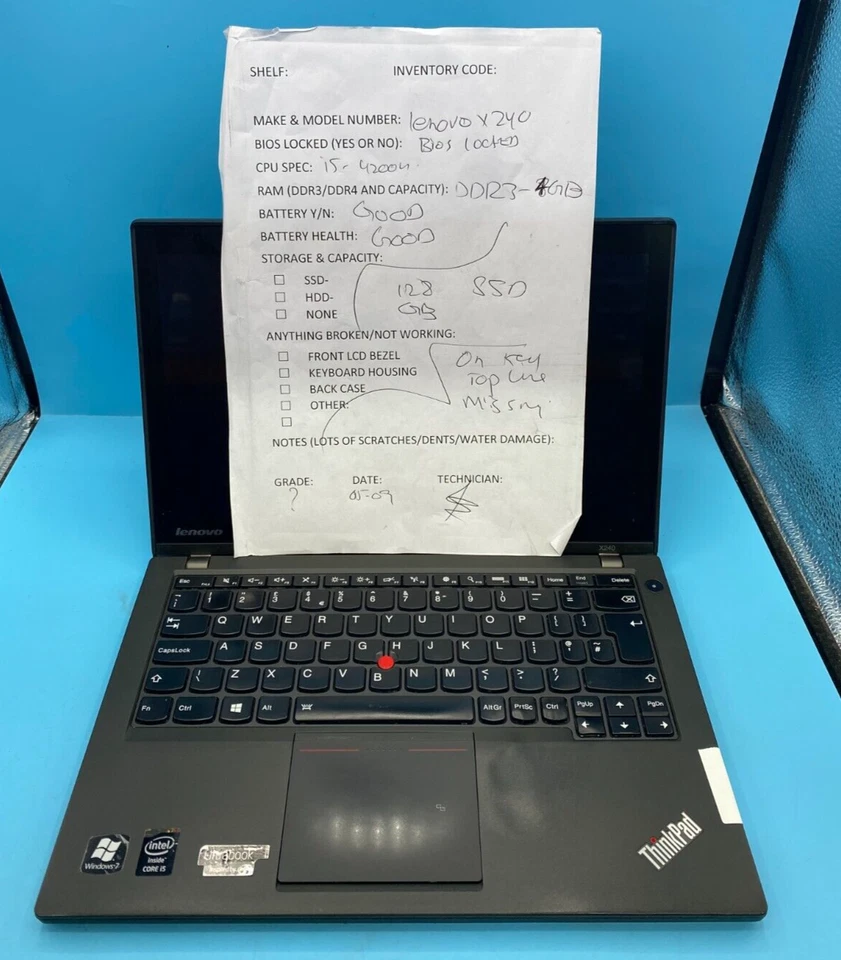 SHELF: INVENTORY CODE:
MAKE & MODEL NUMBER: lenovo x240
BIOS LOCKED (YES OR NO): Bios locked
CPU SPEC: i5-4200u
RAM (DDR3/DDR4 AND CAPACITY): DDR3-4GB
BATTERY Y/N: GOOD
BATTERY HEALTH: GOOD
STORAGE & CAPACITY:
SSD-
HDD- 128 SSD
NONE GB
ANYTHING BROKEN/NOT WORKING:
FRONT LCD BEZEL On Key
KEYBOARD HOUSING Top Line
BACK CASE
OTHER: Missing
NOTES (LOTS OF SCRATCHES/DENTS/WATER DAMAGE):
GRADE: DATE: TECHNICIAN:
? 05-09
lenovo X240
Esc Home End Delete
1 2 3 4 5 6 7 8 9 0
Q W E R T Y U I O P
CapsLock A S D F G H J K L
Z X C V B N M
Fn Ctrl Alt AltGr PrtSc Ctrl PgUp PgDn
Windows 7
intel
inside
CORE i5
Ultrabook
ThinkPad